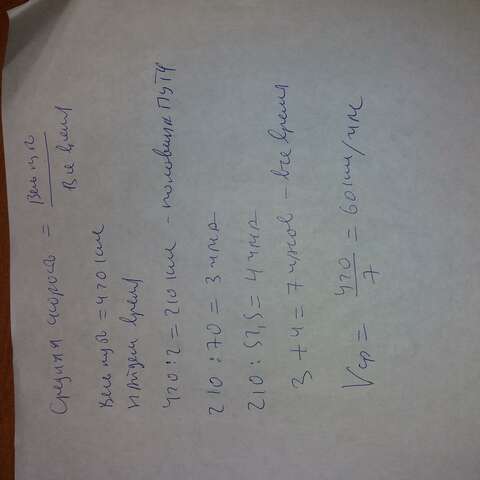 Средняя скорость = Весь путь
Все время
Весь путь = 420 км
Найдем время
420 : 2 = 210 км - половина пути
210 : 70 = 3 часа
210 : 52,5 = 4 часа
3 + 4 = 7 часов - все время
Vср = 420/7 = 60 км/час